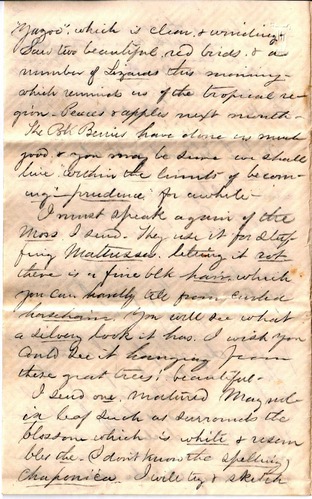 "Yazoo", which is clear, & winding.
Saw two beautiful red birds. & a
number of Lizards this morning
which remind us of the tropical re-
gion. Peaces & apples next month -
The Blk Berries have done us much
good, & you may be sure we shall
live within the limits of becom-
ing prudence for awhile -
I must speak again of the
Moss I send. They use it for stuf-
fing Mattresses. letting it rot
there is a fine blk hair, which
you can hardly tell from curled
horsehair. You will see what
a silvery look it has. I wish you
could see it hanging from
these great trees! beautiful -
I send one, matured Magnolia
in leaf such as surrounds the
blossom which is white & resem
bles the - (I don't know the spelling)
chaponica. I will try & sketch